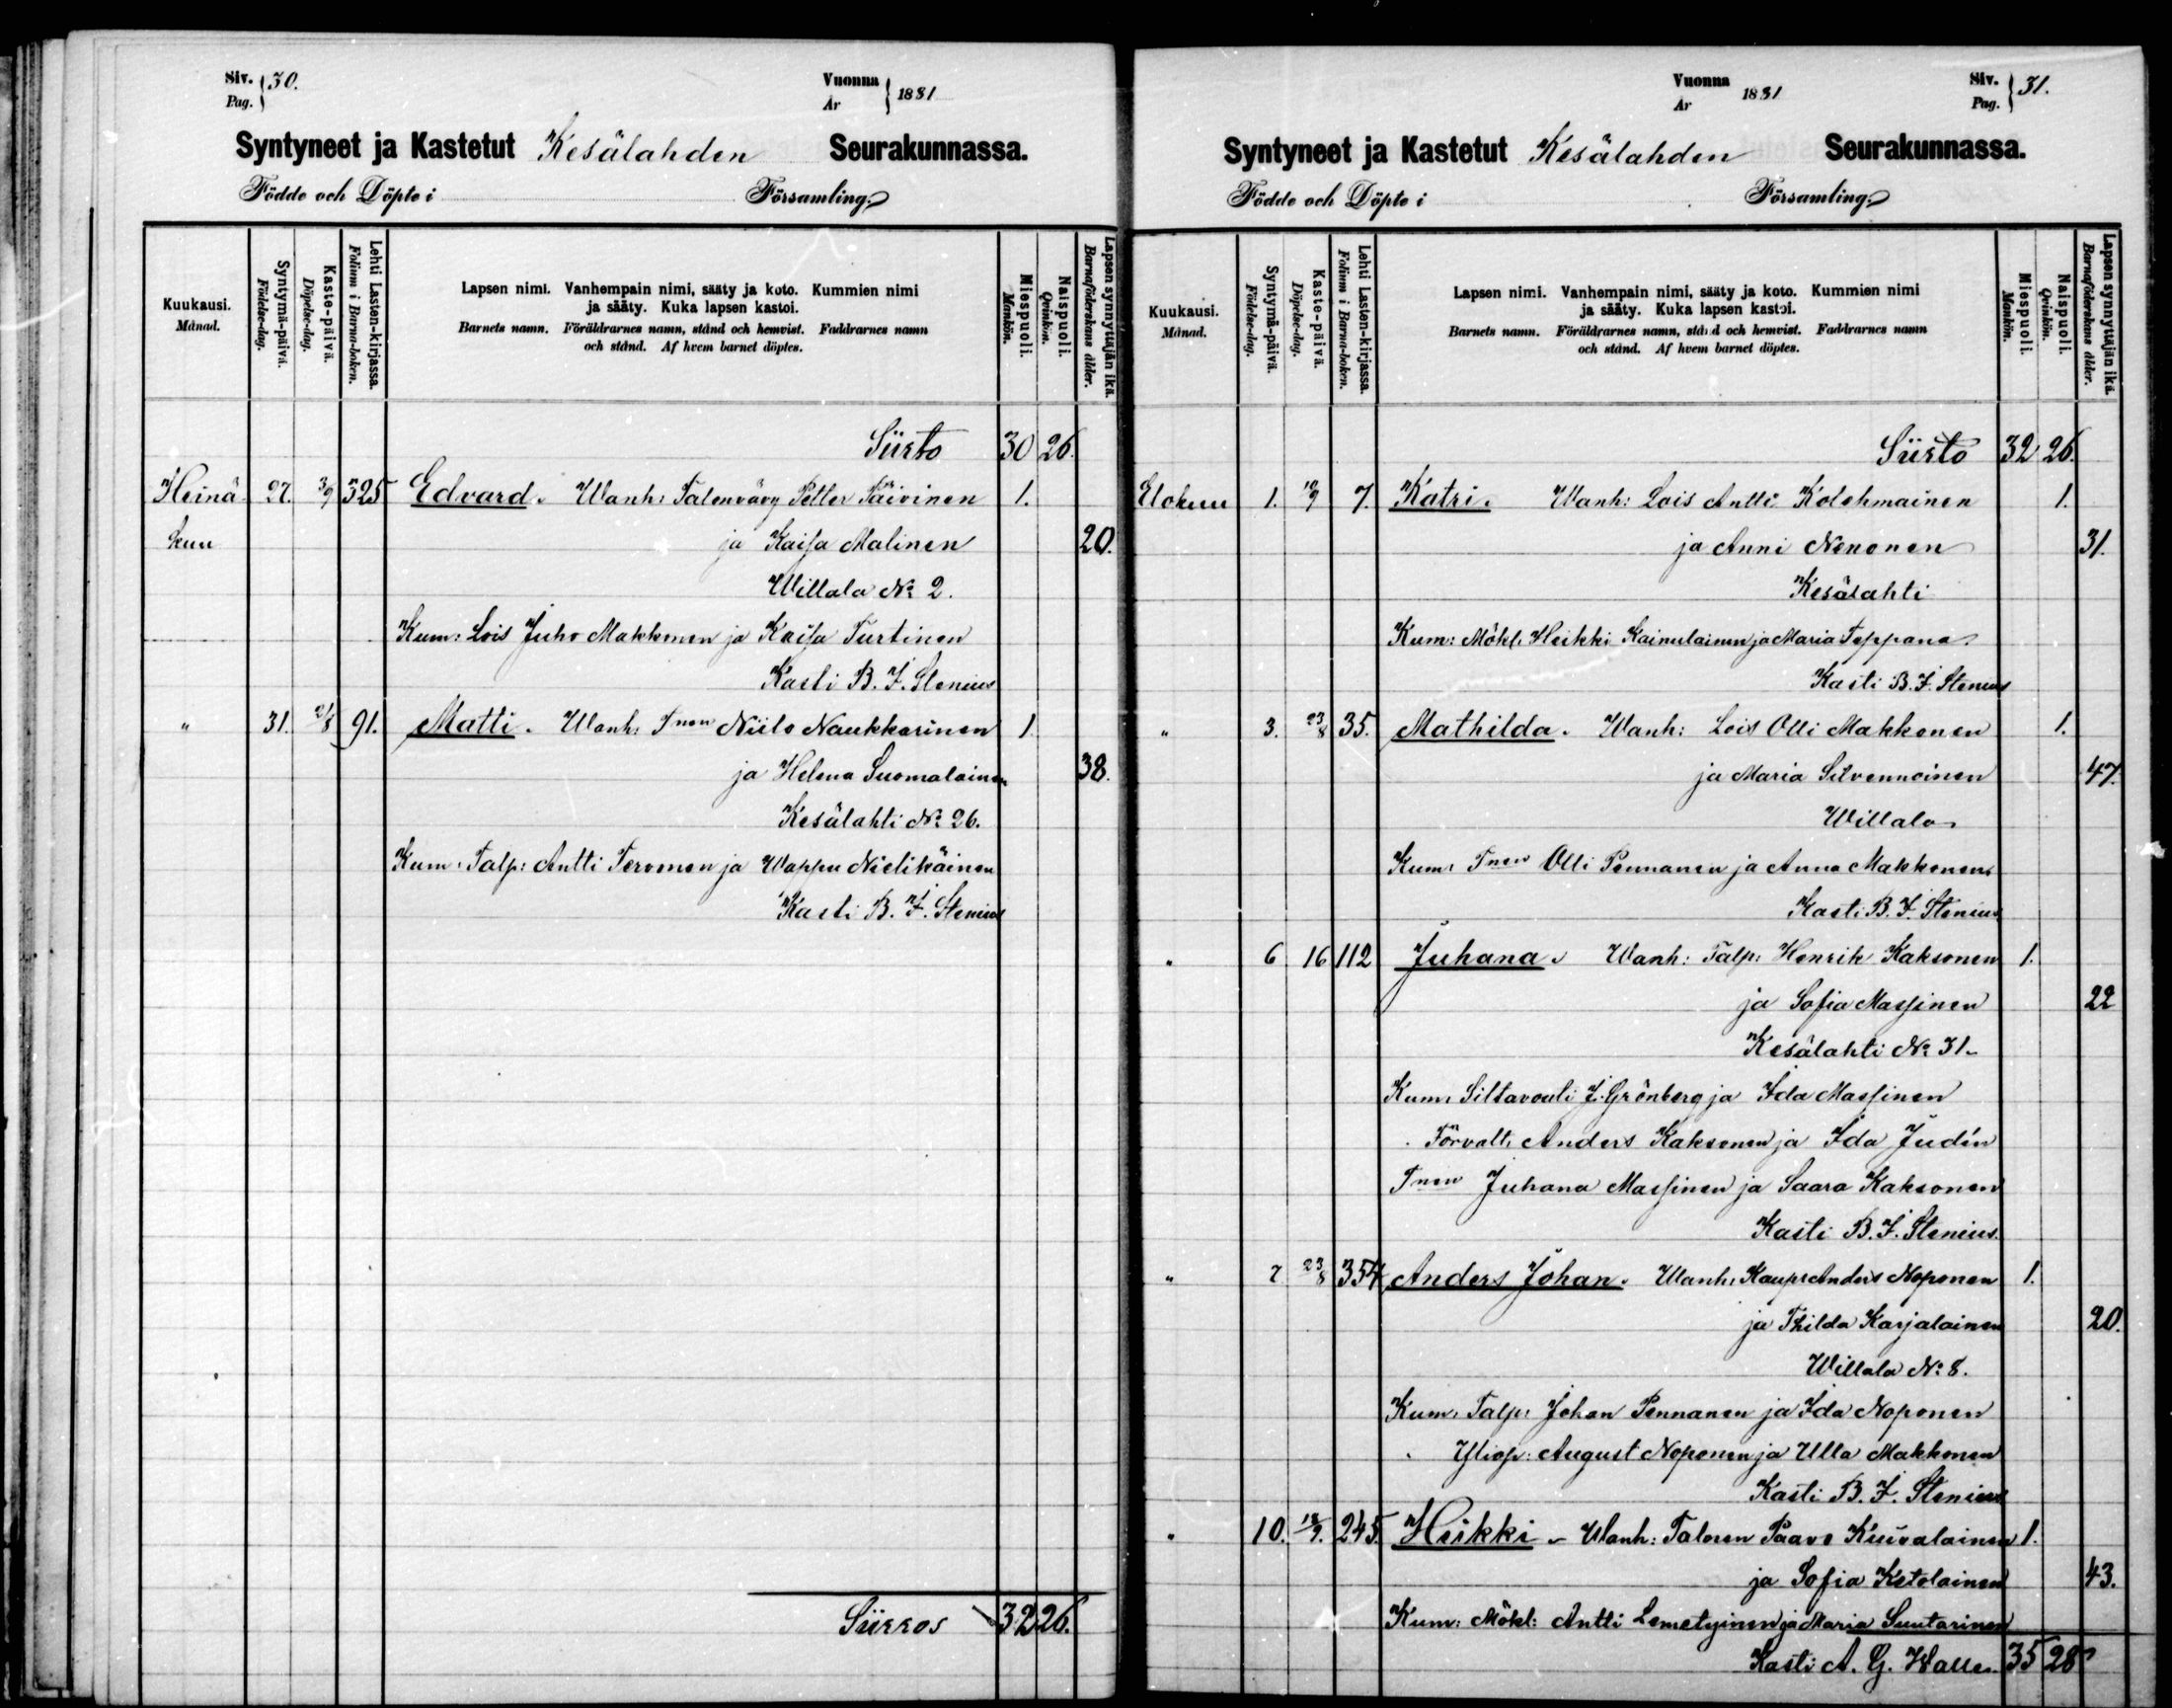 Siv. Pag. } 30.
Vuonna År } 1881
Syntyneet ja Kastetut Kesälahden Seurakunnassa.
Födde och Döpte i Församling.
Kuukausi. Månad.
Syntymä-päivä. Födelse-dag.
Kaste-päivä. Döpelse-dag.
Lehti Lasten-kirjassa. Folium i Barna-boken.
Lapsen nimi. Vanhempain nimi, sääty ja koto. Kummien nimi
ja sääty. Kuka lapsen kastoi.
Barnets namn. Föräldrarnes namn, stånd och hemvist. Faddrarnes namn
och stånd. Af hvem barnet döptes.
Miespuoli. Mankön.
Naispuoli. Qvinkön.
Lapsen synnyttäjän ikä. Barnaföderskans ålder.
Siirto 30 26.
Heinä 27. 3/9 325 Edvard. Wanh: Talonvävy Petter Päivinen 1.
kuu ja Kaisa Malinen 20.
Willala No 2.
Kum: Lois Juho Makkonen ja Kaisa Turtinen
Kasti B. F. Stenius
" 31. 2/8 91. Matti. Wanh: Tnen Niilo Naukkarinen 1
ja Helena Suomalainen 38.
Kesälahti No 26.
Kum: Talp: Antti Tervonen ja Wappu Nielikäinen
Kasti B. F. Stenius
Siirros 32 26.
Vuonna År 1881
Siv. Pag. } 31.
Syntyneet ja Kastetut Kesälahden Seurakunnassa.
Födde och Döpte i Församling.
Kuukausi. Månad.
Syntymä-päivä. Födelse-dag.
Kaste-päivä. Döpelse-dag.
Lehti Lasten-kirjassa. Folium i Barna-boken.
Lapsen nimi. Vanhempain nimi, sääty ja koto. Kummien nimi
ja sääty. Kuka lapsen kastoi.
Barnets namn. Föräldrarnes namn, stånd och hemvist. Faddrarnes namn
och stånd. Af hvem barnet döptes.
Miespuoli. Mankön.
Naispuoli. Qvinkön.
Lapsen synnyttäjän ikä. Barnaföderskans ålder.
Siirto 32 26.
Elokuu 1. 10/9 7. Katri. Wanh: Lois Antti Kolehmainen 1.
ja Anni Nenonen 31.
Kesälahti
Kum: Mökl: Heikki Kainulainen ja Maria Teppana
Kasti B. F. Stenius
" 3. 23/8 35. Mathilda. Wanh: Lois Olli Makkonen 1.
ja Maria Silvennoinen 47.
Willala
Kum: Tnen Olli Pennanen ja Anna Makkonen
Kasti B. F. Stenius
" 6 16 112 Juhana. Wanh: Talp: Henrik Kaksonen 1.
ja Sofia Massinen 22
Kesälahti No 31.
Kum: Siltavouti J. Grönberg ja Ida Massinen
Förvalt: Anders Kaksonen ja Ida Judin
Tnen Juhana Massinen ja Saara Kaksonen
Kasti B. F. Stenius.
" 7 23/8 354 Anders Johan. Wanh: Kaup: Anders Noponen 1.
ja Thilda Karjalainen 20.
Willala No 8.
Kum: Talp: Johan Pennanen ja Ida Noponen
Yliop: August Noponen ja Ulla Makkonen
Kasti B. F. Stenius
" 10. 18/9. 245. Heikki. Wanh: Talonen Paavo Kuivalainen 1.
ja Sofia Ketolainen 43.
Kum: Mökl: Antti Lemetyinen ja Maria Suutarinen
Kasti A. G. Walle. 35 28